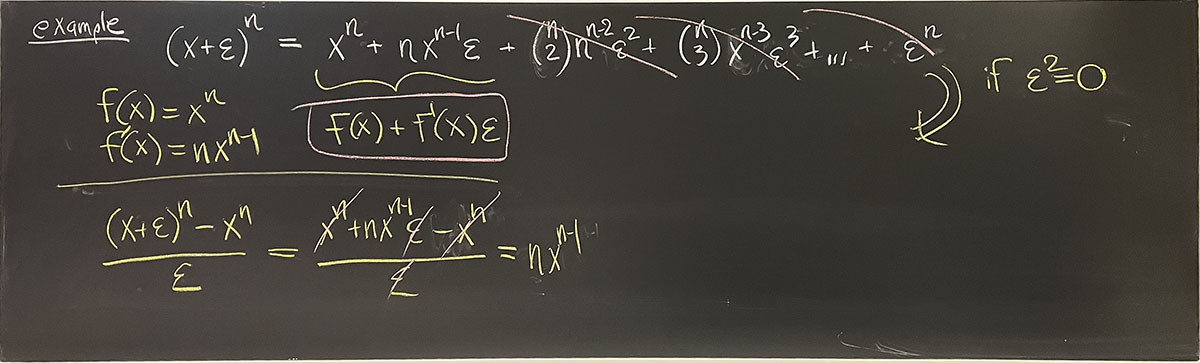 example (x+ε)ⁿ = xⁿ + nxⁿ⁻¹ε + (n 2)nⁿ⁻²ε² + (n 3)xⁿ⁻³ε³ + ... + εⁿ
if ε²=0
f(x) = xⁿ
f'(x) = nxⁿ⁻¹
f(x) + f'(x)ε
((x+ε)ⁿ - xⁿ)/ε = (xⁿ + nxⁿ⁻¹ε - xⁿ)/ε = nxⁿ⁻¹